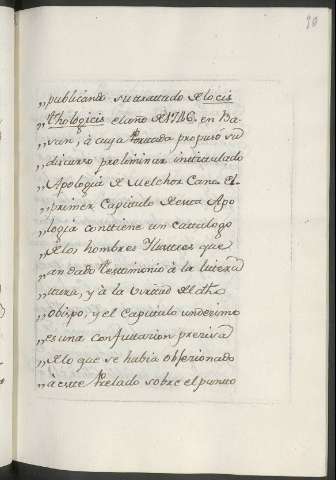 90
„publicando su trattado de locis
„thologicis el año de 1746. en Ba-
„san, à cuja portada propuso su
„discurso preliminar intitulado
„Apologia de Melchor Cano. El
„primer Capitulo de esta Apo
„logia contiene un catalogo
„de los hombres Ilustres que
„an dado testimonio à la litera
„tura, y à la virtud del dho.
„obispo, y el Capitulo undecimo
„es una confutacion precisa
„de lo que se habia obserionado
„à este Prelado sobre el punto